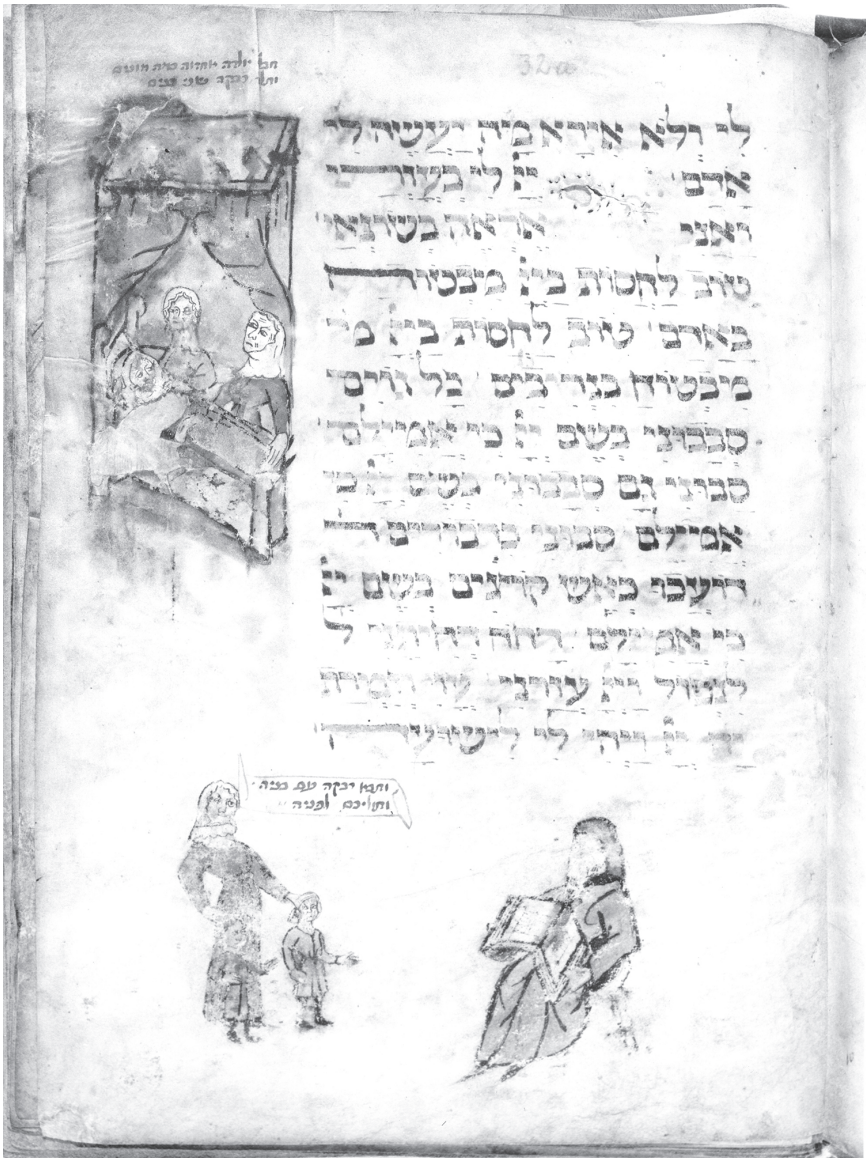 חבלי יולדה אחזוה
ותלד רבקה שני
32a
לי ולא אירא מה יעשה לי
אדם יי לי בעוזרי
ואני אראה בשונאי
טוב לחסות ביי מבטוח
באדם טוב לחסות ביי מ
מבטוח בנדיבים כל גוים
סבבוני בשם יי כי אמילם
סבוני גם סבבוני בשם יי כי
אמילם סבוני כדבורים ד
דועכו כאש קוצים בשם יי
כי אמילם דחה דחיתני ל
לנפול ויי עזרני עזי וזמרת
יה ויהי לי לישועה
ותבא רבקה עם בניה
ותוליכם לפניה